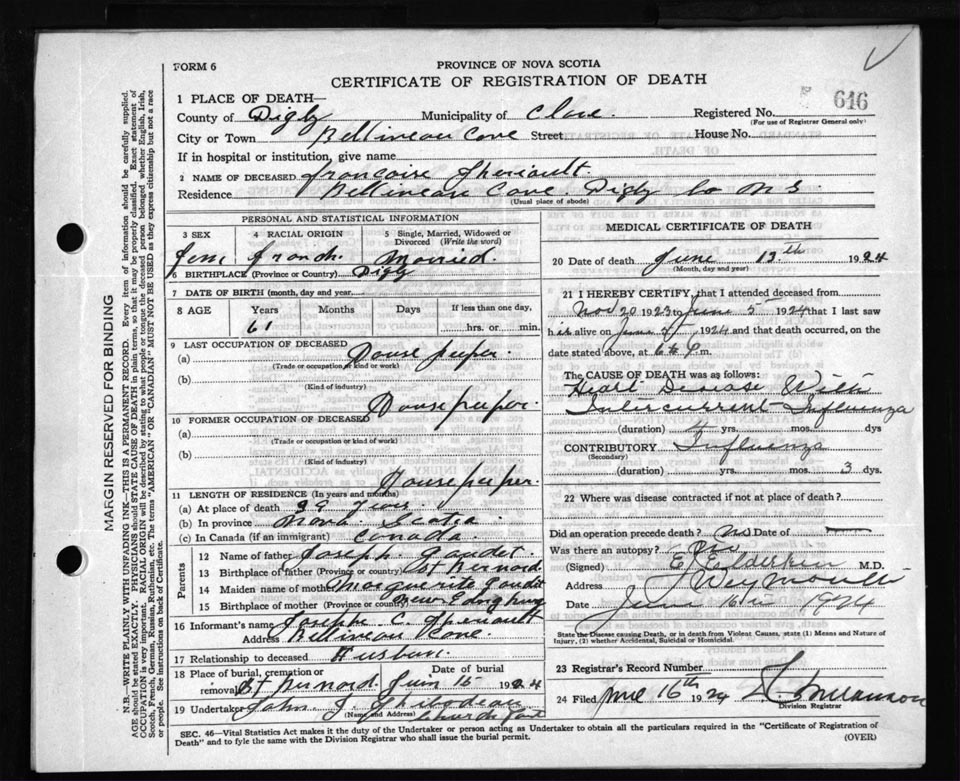 FORM 6
PROVINCE OF NOVA SCOTIA
CERTIFICATE OF REGISTRATION OF DEATH
616
1 PLACE OF DEATH—
County of Digby Municipality of Clare. Registered No.
(For use of Registrar General only)
City or Town Bellineau Cove Street House No.
If in hospital or institution, give name
2 NAME OF DECEASED Francoise Theriault
Residence Bellineau Cove Digby Co N S
(Usual place of abode)
PERSONAL AND STATISTICAL INFORMATION
3 SEX 4 RACIAL ORIGIN 5 Single, Married, Widowed or Divorced (Write the word)
Fem French. Married.
6 BIRTHPLACE (Province or Country) Digby
7 DATE OF BIRTH (month, day and year)
8 AGE Years Months Days If less than one day,
61 hrs. or min.
9 LAST OCCUPATION OF DECEASED
(a) House keeper.
(Trade or occupation or kind or work)
(b)
(Kind of industry)
House keeper.
10 FORMER OCCUPATION OF DECEASED
(a)
(Trade or occupation or kind of work)
(b)
(Kind of industry)
House keeper.
11 LENGTH OF RESIDENCE (In years and months)
(a) At place of death 39 Years
(b) In province Nova Scotia
(c) In Canada (if an immigrant) Canada.
Parents
12 Name of father Joseph Gaudet.
13 Birthplace of father (Province or country) St Bernard
14 Maiden name of mother Marguerite Gaudet
15 Birthplace of mother (Province or country) New
16 Informant's name Joseph C. Theriault
Address Bellineau Cove.
17 Relationship to deceased Husban.
18 Place of burial, cremation or removal St Bernard. Date of burial Juin 15 1924
19 Undertaker John J. Thibodeau
(Name and Address) Church Point
MEDICAL CERTIFICATE OF DEATH
20 Date of death June 13th 1924
(Month, day and year)
21 I HEREBY CERTIFY, that I attended deceased from
Nov 20 1923 to June 5 1924 that I last saw
h alive on June 5 1924 and that death occurred, on
date stated above, at 6 m.
The CAUSE OF DEATH was as follows:
Heart Disease With
Intercurrent Influenza
(duration) yrs. mos. dys
CONTRIBUTORY Influenza
(Secondary)
(duration) yrs. mos. 3 dys.
22 Where was disease contracted if not at place of death?
Did an operation precede death? no Date of —
Was there an autopsy? no
(Signed) E Elderkin M.D.
Address Weymouth
Date June 16th 1924
State the Disease causing Death, or in death from Violent Causes, state (1) Means and Nature of Injury, (2) whether Accidental, Suicidal or Homicidal.
23 Registrar's Record Number
24 Filed June 16th 1924
Division Registrar
SEC. 46—Vital Statistics Act makes it the duty of the Undertaker or person acting as Undertaker to obtain all the particulars required in the "Certificate of Registration of
Death" and to fyle the same with the Division Registrar who shall issue the burial permit.
(OVER)
MARGIN RESERVED FOR BINDING
N.B.—WRITE PLAINLY WITH UNFADING INK—THIS IS A PERMANENT RECORD. Every item of information should be carefully supplied.
AGE should be stated EXACTLY. PHYSICIANS should STATE CAUSE OF DEATH in plain terms, so that it may be properly classified. Exact statement of
OCCUPATION is very important. RACIAL ORIGIN will be described by stating to what people or tongue the deceased person belonged, whether English, Irish,
Scotch, French, German, Russian, Ruthenian, etc. The terms "AMERICAN" or "CANADIAN" MUST NOT BE USED as they express citizenship but not a race
or people. See instructions on back of Certificate.